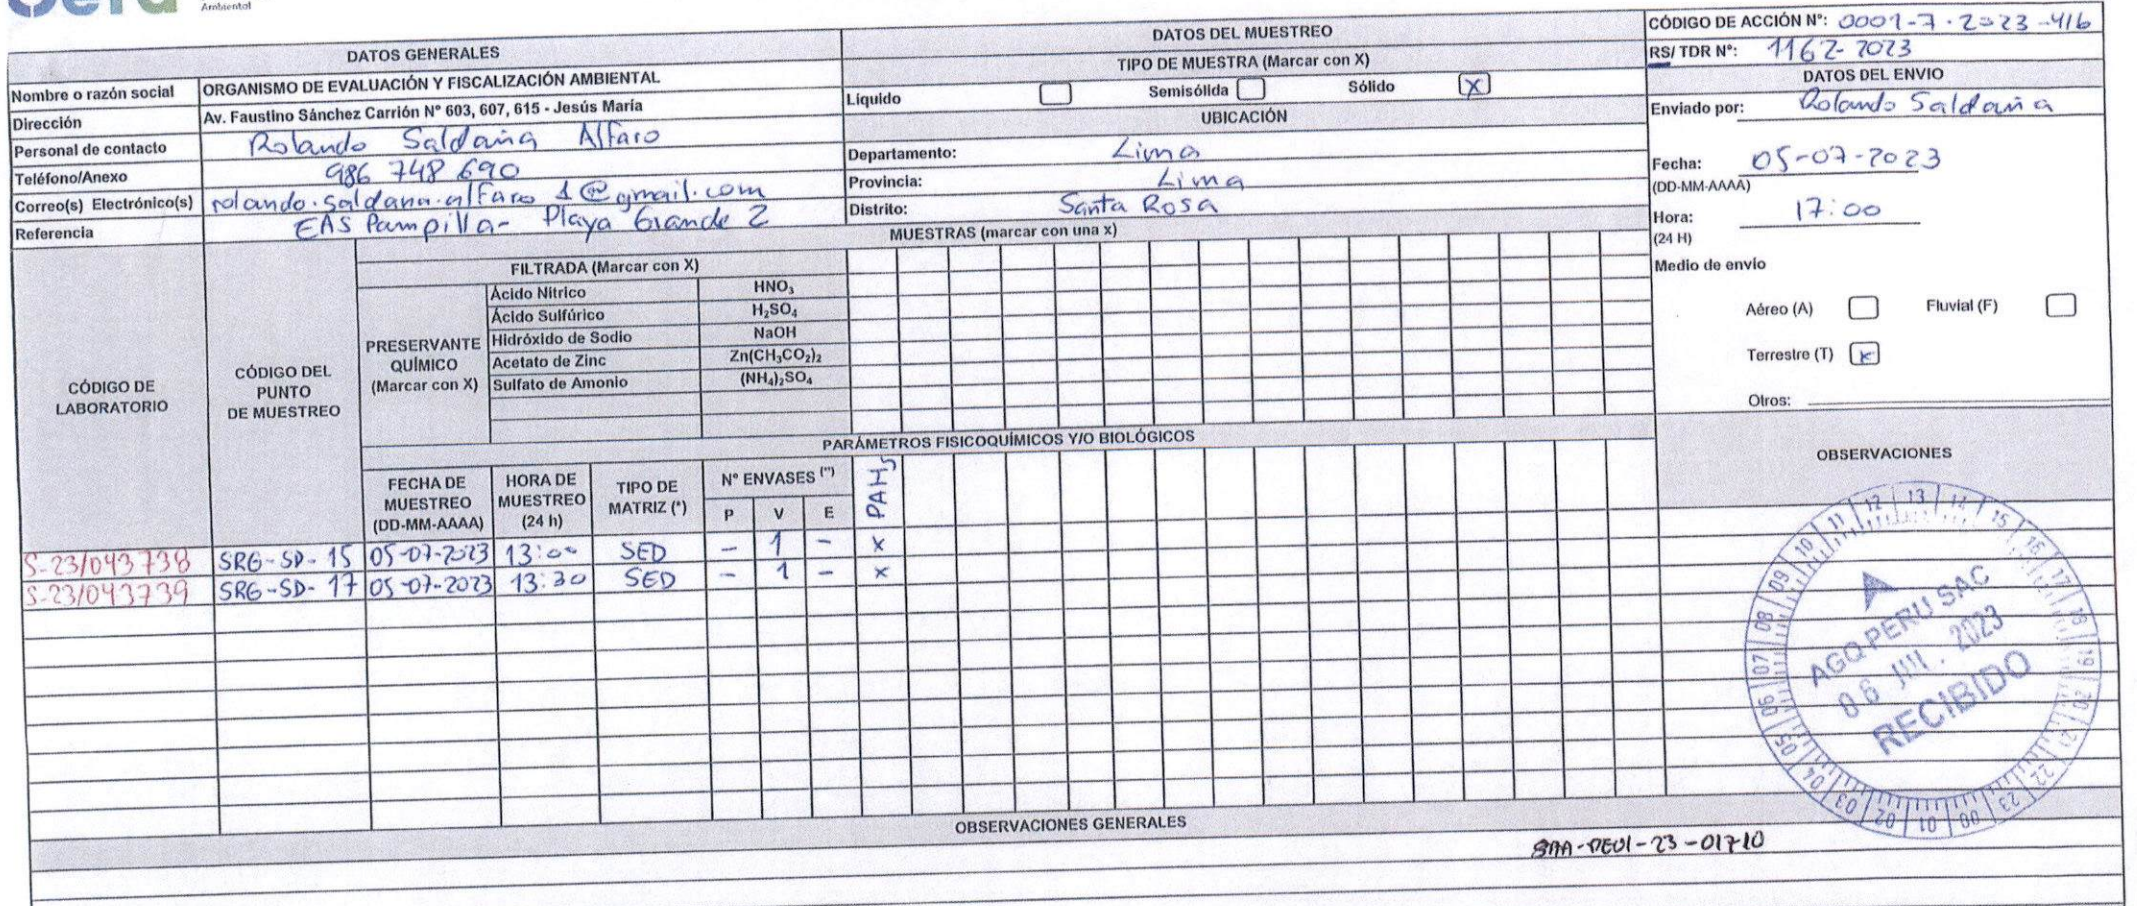 Ambiental
DATOS GENERALES
Nombre o razón social ORGANISMO DE EVALUACIÓN Y FISCALIZACIÓN AMBIENTAL
Dirección Av. Faustino Sánchez Carrión N° 603, 607, 615 - Jesús María
Personal de contacto Rolando Saldaña Alfaro
Teléfono/Anexo 986 748 690
Correo(s) Electrónico(s) rolando.saldana.alfaro1@gmail.com
Referencia EAS Pampilla - Playa Grande 2
DATOS DEL MUESTREO
TIPO DE MUESTRA (Marcar con X)
Líquido Semisólida Sólido X
UBICACIÓN
Departamento: Lima
Provincia: Lima
Distrito: Santa Rosa
CÓDIGO DE ACCIÓN N°: 0001-7-2023-416
RS/ TDR N°: 1162-2023
DATOS DEL ENVIO
Enviado por: Rolando Saldaña
Fecha: 05-07-2023
(DD-MM-AAAA)
Hora: 17:00
(24 H)
Medio de envio
Aéreo (A) Fluvial (F)
Terrestre (T) x
Otros:
OBSERVACIONES
MUESTRAS (marcar con una x)
CÓDIGO DE
LABORATORIO
CÓDIGO DEL
PUNTO
DE MUESTREO
FILTRADA (Marcar con X)
PRESERVANTE
QUÍMICO
(Marcar con X)
Ácido Nítrico HNO₃
Ácido Sulfúrico H₂SO₄
Hidróxido de Sodio NaOH
Acetato de Zinc Zn(CH₃CO₂)₂
Sulfato de Amonio (NH₄)₂SO₄
PARÁMETROS FISICOQUÍMICOS Y/O BIOLÓGICOS
FECHA DE
MUESTREO
(DD-MM-AAAA)
HORA DE
MUESTREO
(24 h)
TIPO DE
MATRIZ (*)
N° ENVASES (**)
P V E
PAHs
S-23/043738 SRG-SD-15 05-07-2023 13:00 SED - 1 - x
S-23/043739 SRG-SD-17 05-07-2023 13:30 SED - 1 - x
12 13 14 15 16 17 18 19 20 21 22 23 00 01 02 03 04 05 06 07 08 09 10 11
AGQ PERU SAC
06 JUL. 2023
RECIBIDO
OBSERVACIONES GENERALES
SAA-PE01-23-01710